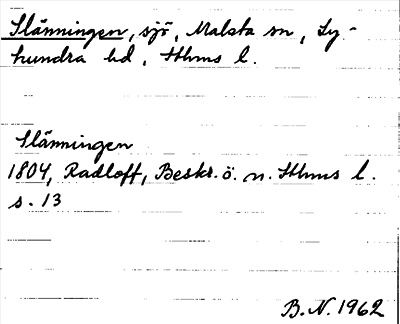 Slänningen, sjö, Malsta sn, Ly-
hundra hd, Sthms l.
Slänningen
1804, Radloff, Beskr. ö. n. Sthms l.
s. 13
B. N. 1962